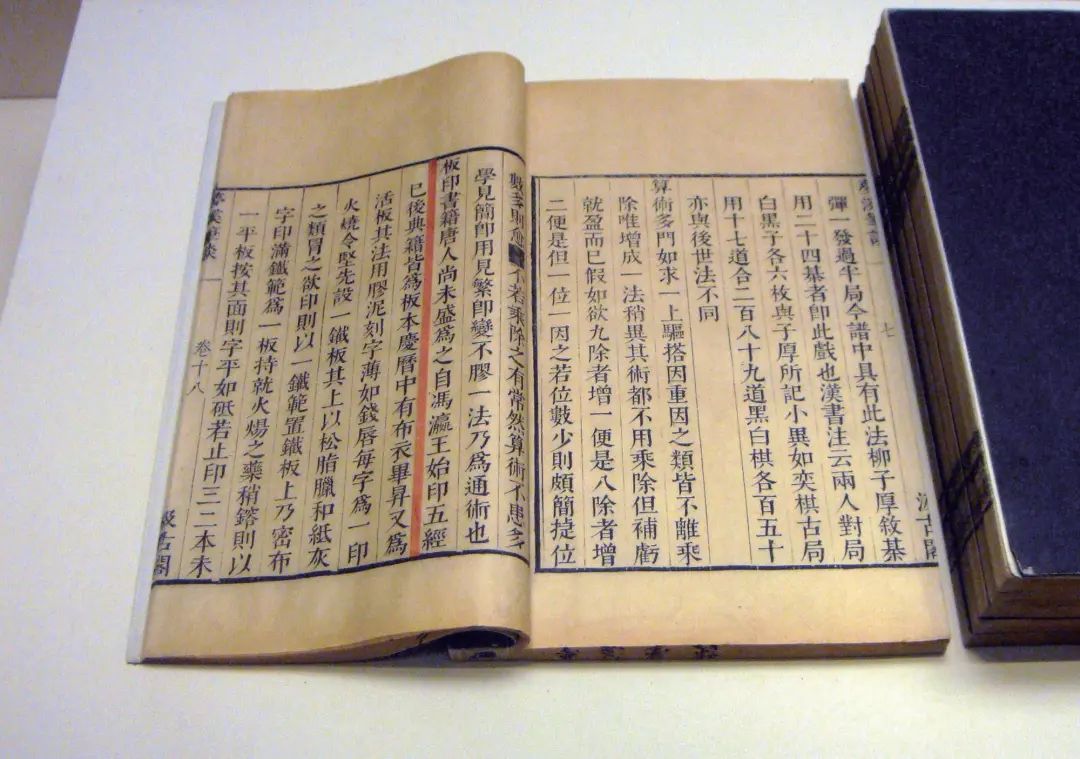 彈一發過半局今譜中具有此法柳子厚敘棊
用二十四棊者卽此戲也漢書注云兩人對局
白黑子各六枚與子厚所記小異如奕棋古局
用十七道合二百八十九道黑白棋各百五十
亦與後世法不同
算術多門如求一上驅搭因重因之類皆不離乘
除唯增成一法稍異其術都不用乘除但補虧
就盈而已假如欲九除者增一便是八除者增
二便是但一位一因之若位數少則頗簡捷位
數多則愈 不若乘除之有常然算術不患多
學見簡卽用見繁卽變不膠一法乃爲通術也
板印書籍唐人尚未盛爲之自馮瀛王始印五經
已後典籍皆爲板本慶曆中有布衣畢昇又爲
活板其法用膠泥刻字薄如錢唇每字爲一印
火燒令堅先設一鐵板其上以松脂臘和紙灰
之類冒之欲印則以一鐵範置鐵板上乃密布
字印滿鐵範爲一板持就火煬之藥稍鎔則以
一平板按其面則字平如砥若止印三二本未
卷十八
汲古閣
七
汲古閣